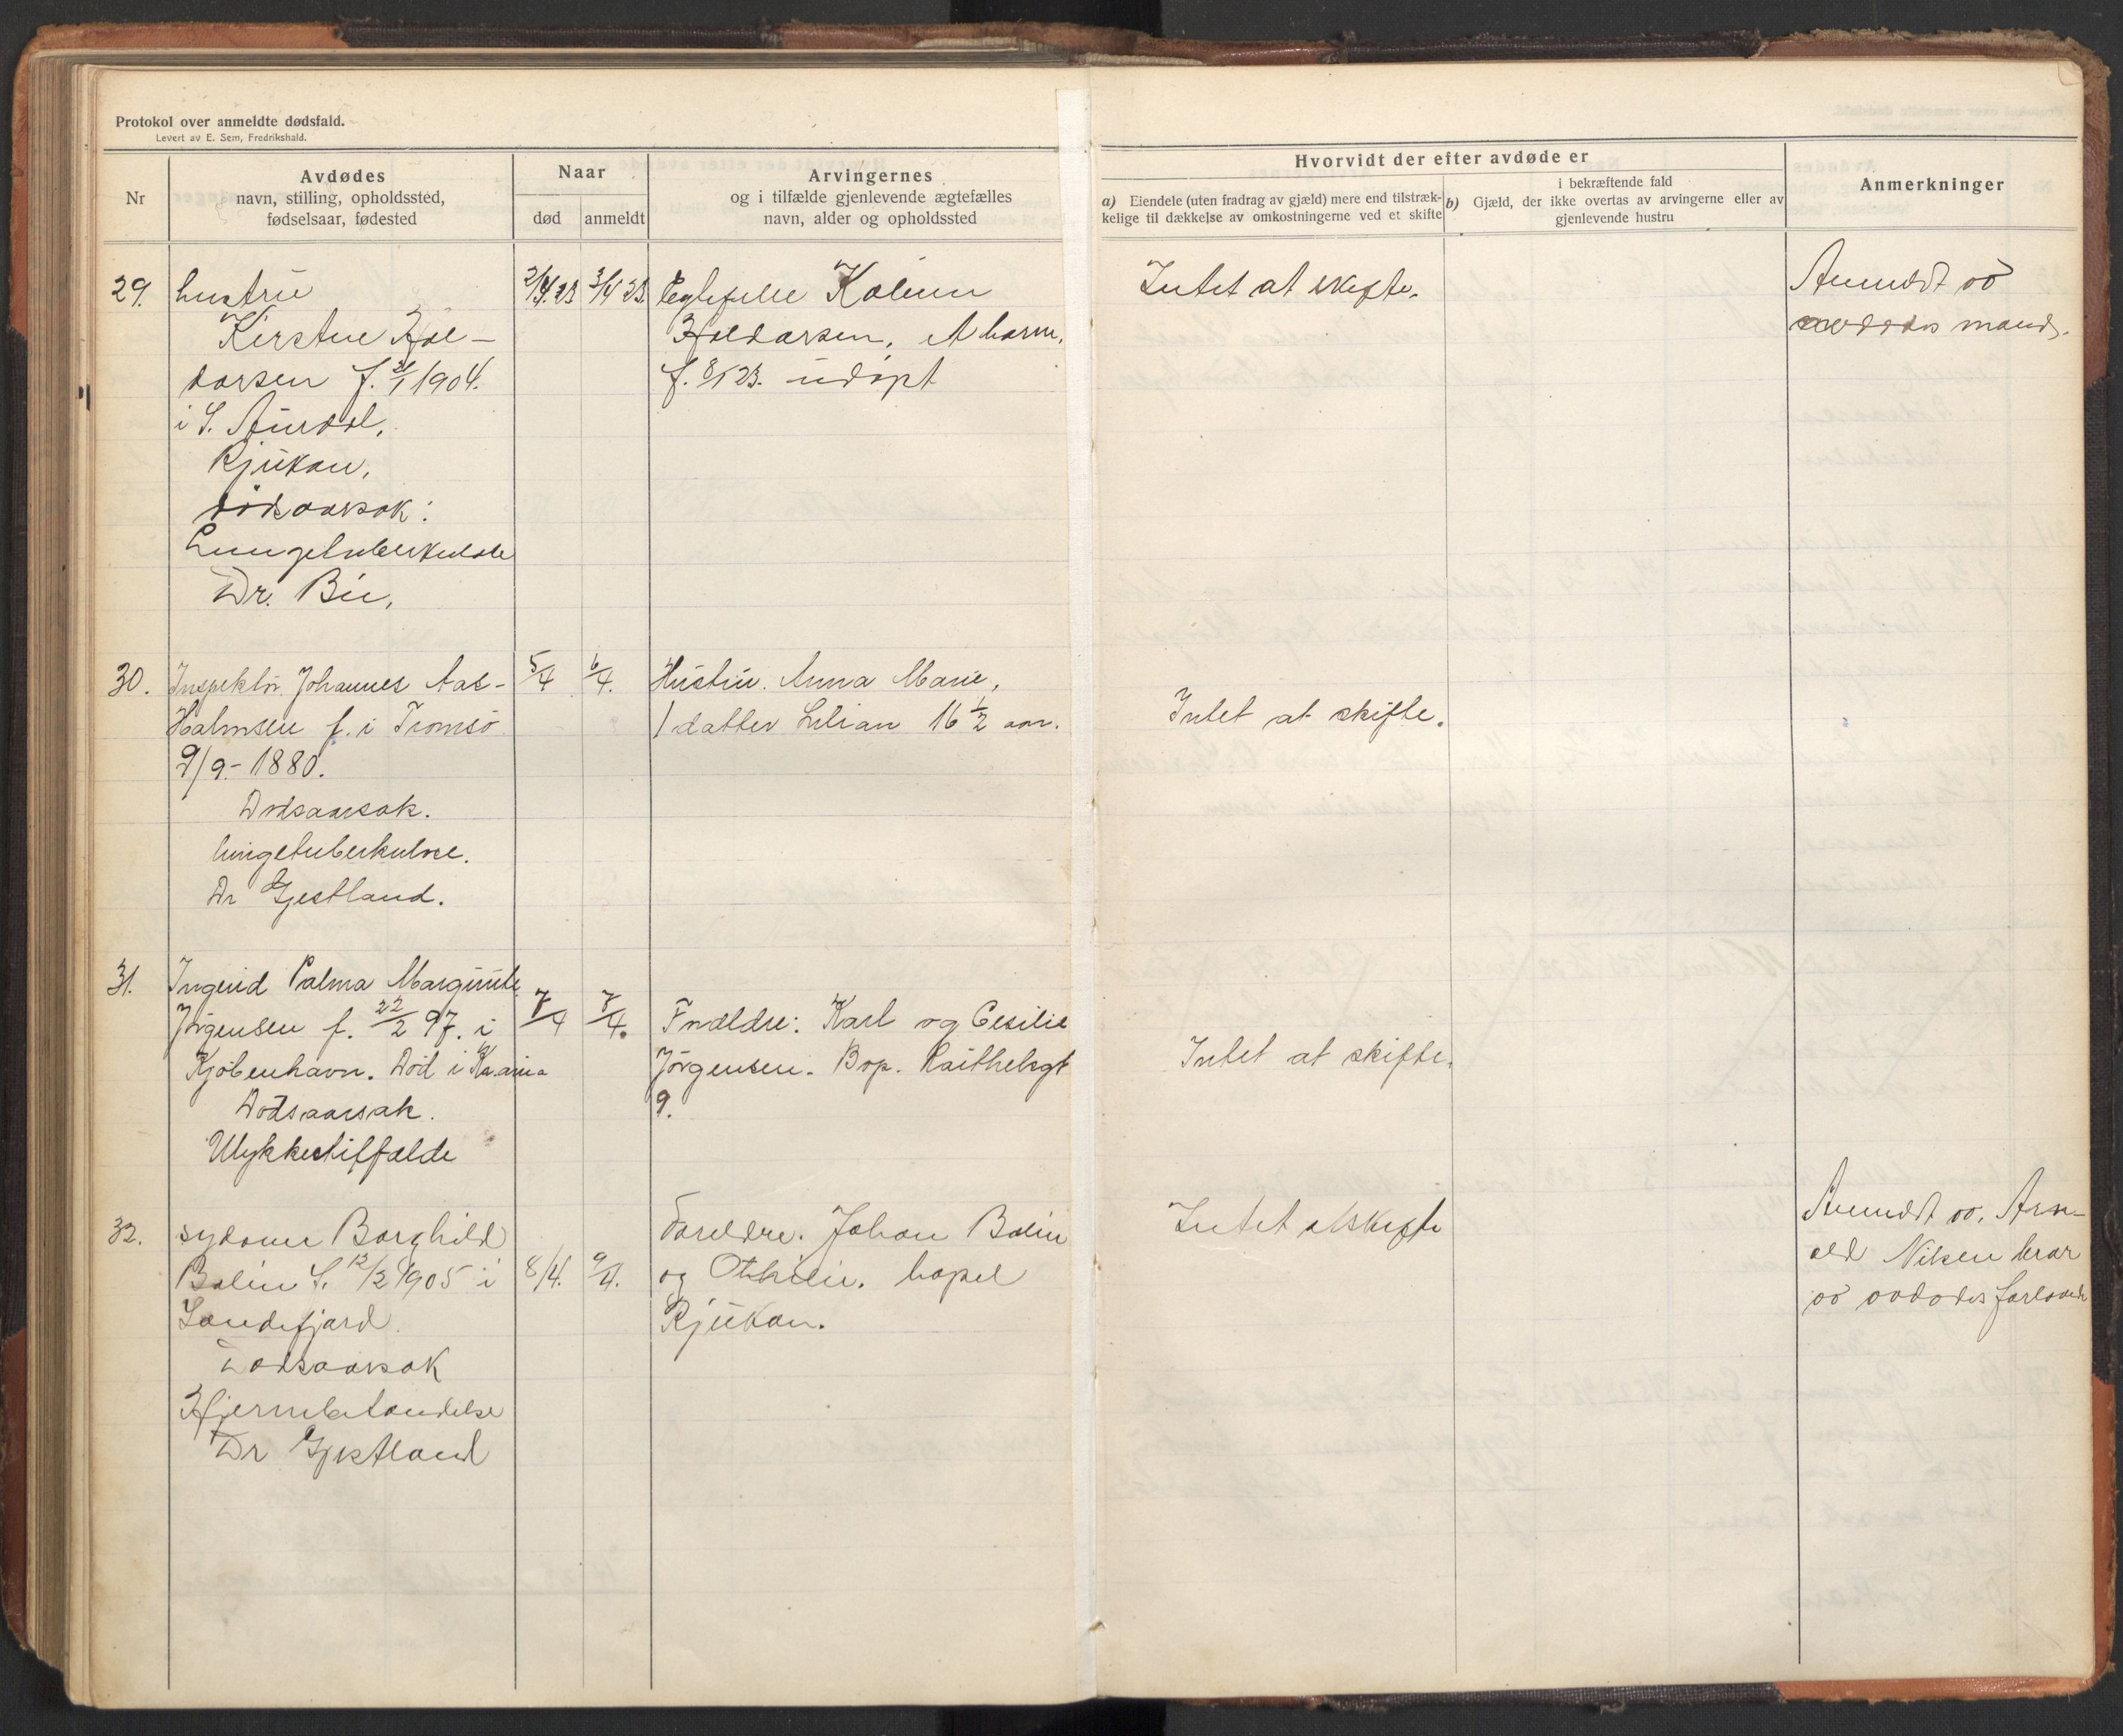 Protokol over anmeldte dødsfald.
Levert av E. Sem, Fredrikshald.
Nr
Avdødes
navn, stilling, opholdssted,
fødselsaar, fødested
Naar
død
anmeldt
Arvingernes
og i tilfælde gjenlevende ægtefælles
navn, alder og opholdssted
Hvorvidt der efter avdøde er
a) Eiendele (uten fradrag av gjæld) mere end tilstræk-
kelige til dækkelse av omkostningerne ved et skifte
i bekræftende fald
b) Gjæld, der ikke overtas av arvingerne eller av
gjenlevende hustru
Anmerkninger
29.
hustru
Kirsten Hal-
dorsen f. 21/1 1904.
i S. Aurdal,
Rjukan,
dødsaarsak:
Lungetuberkulose
Dr. Bie,
2/4 23
3/4 23.
Egtefelle
Haldorsen, et barn,
f. 8/1 23. udøpt
Intet at skifte.
Anmeldt av
avdødes mand.
30.
Inspektør Johannes Aas-
Halmsen f. i Tromsø
9/9.- 1880.
Dødsaarsak.
lungetuberkulose.
Dr Gjestland.
5/4
6/4.
Hustru. Anna Marie,
1 datter Lilian 16 1/2 aar.
Intet at skifte.
31.
Ingrid Palma Margrete
Jörgensen f. 22/2 97. i
Kjöbenhavn. Död i Kr.ania
Dødsaarsak.
Ulykkestilfælde
7/4
7/4.
Foreldre: Karl og Cesilie
Jörgensen. Bop.
9.
Intet at skifte.
32.
sydame Borghild
Bolin f. 12/2 1905 i
Sandefjord.
Dødsaarsak
Hjernebetændelse
Dr Gjestland
8/4.
9/4.
Foreldre. Johan Bolin
og bopel
Rjukan.
Intet at skifte
Anmeldt av. Arn-
old Nilsen
av avdødes forlovede